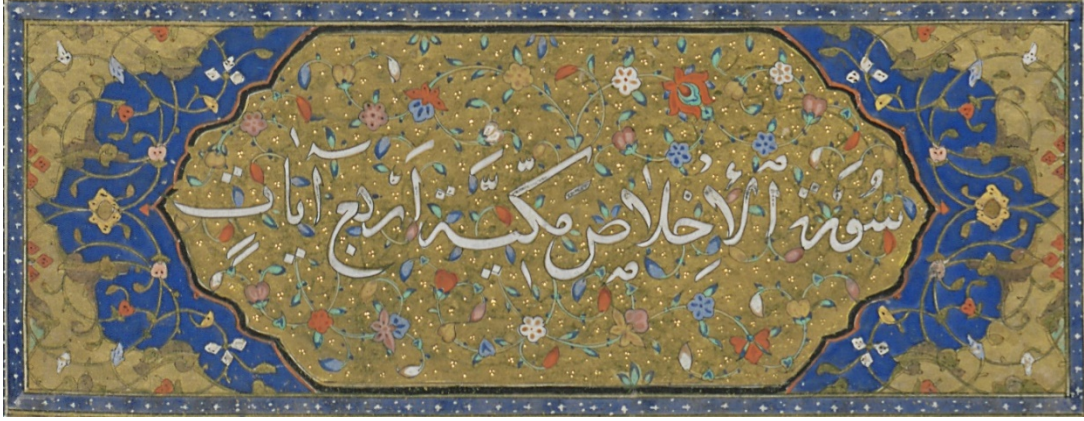 سُورَةُ الْإِخْلَاصِ مَكِّيَّةٌ أَرْبَعُ آيَاتٍ